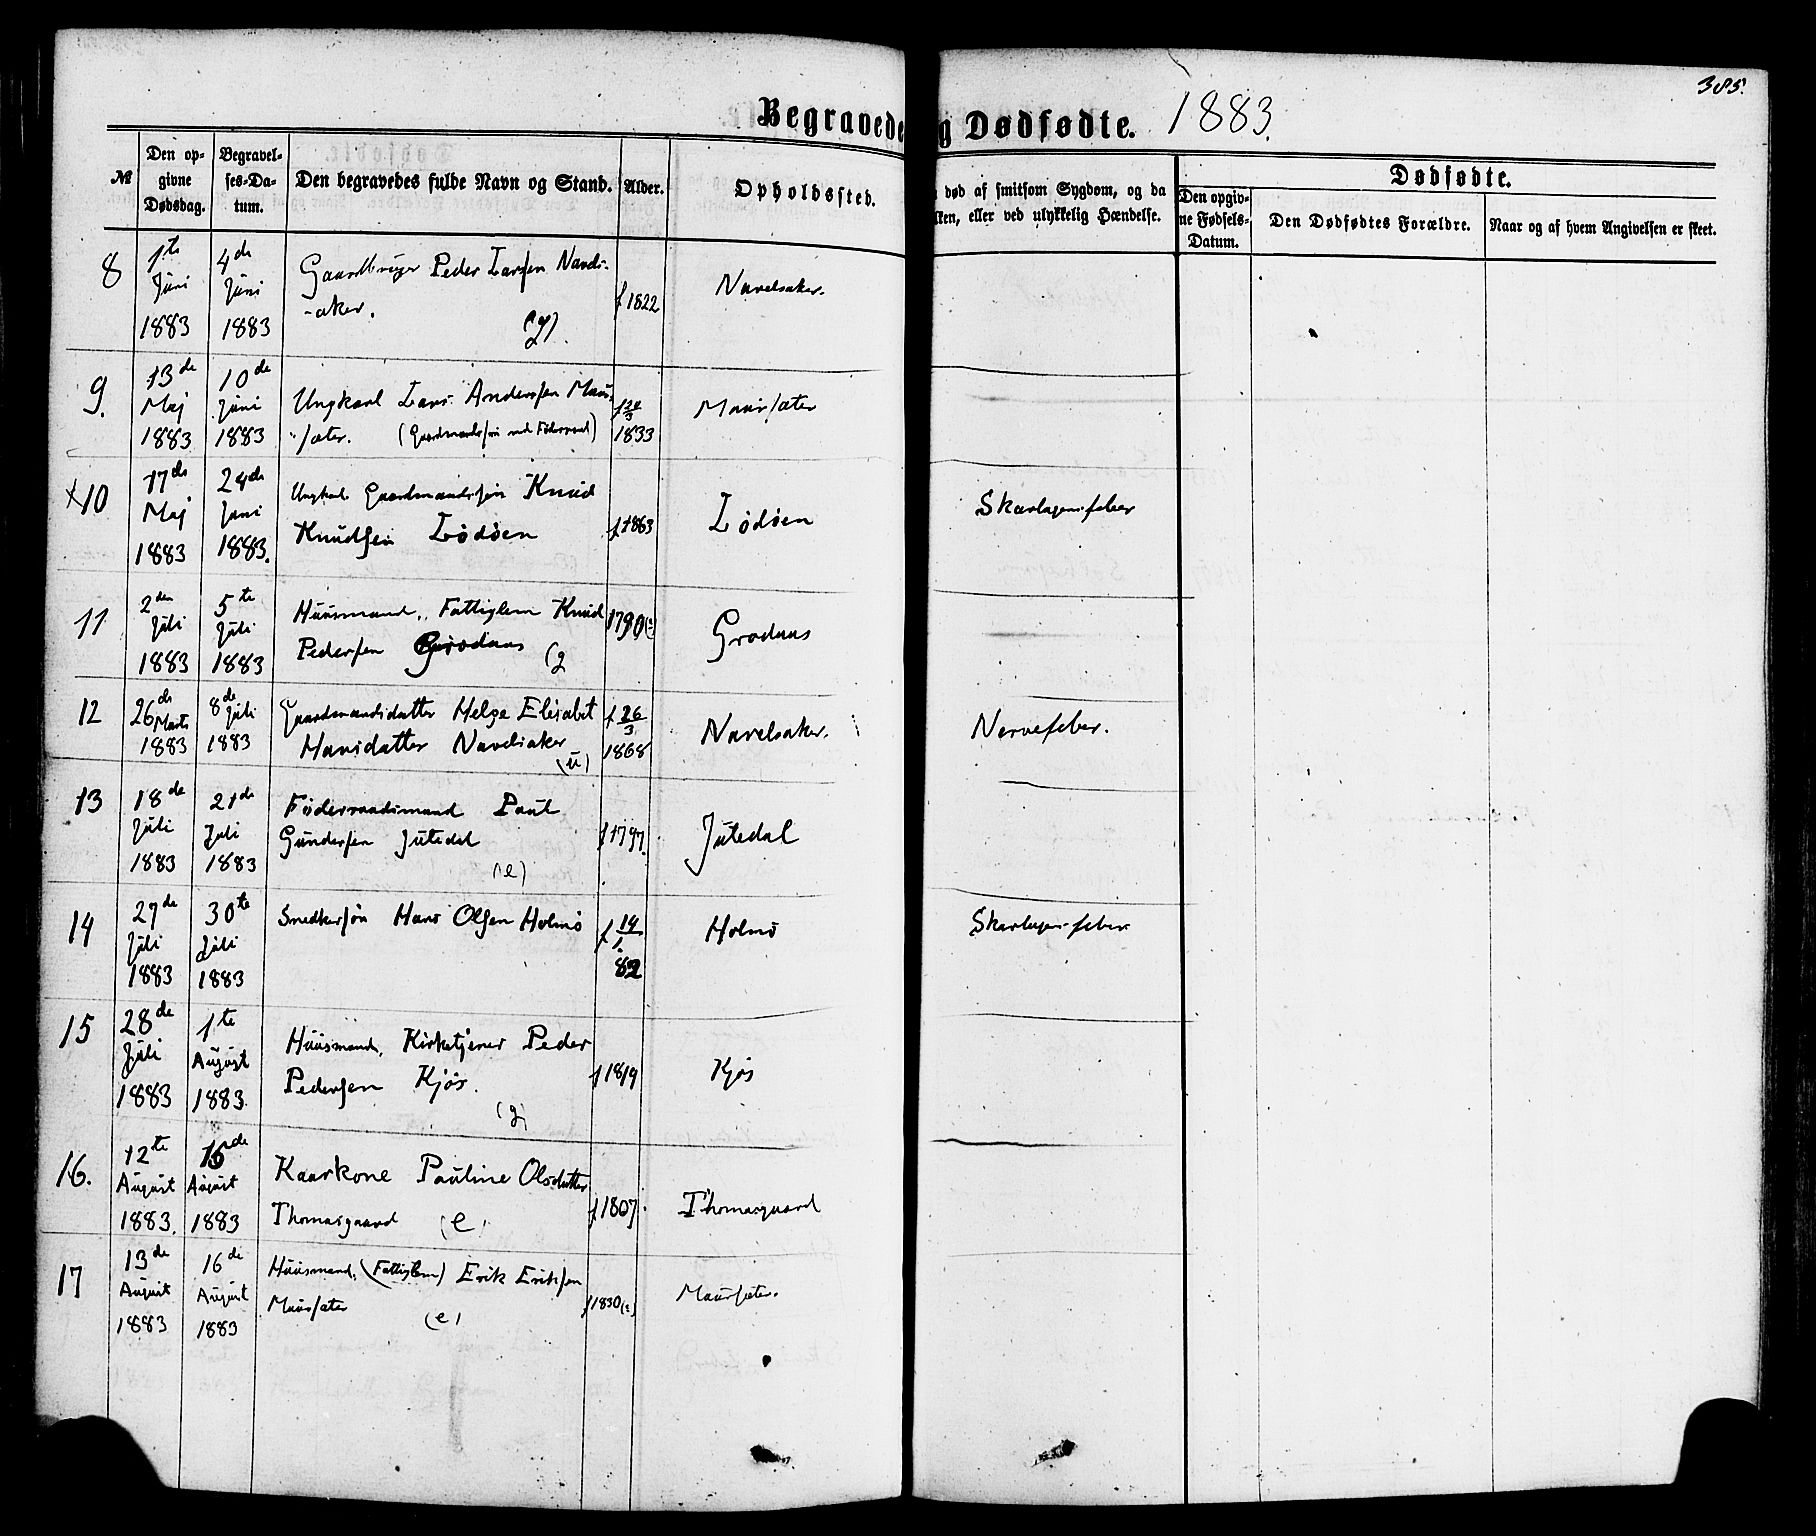 385.
Begravede og Dødfødte. 1883.
№
Den opgivne Dødsdag.
Begravelses-Datum.
Den begravedes fulde Navn og Stand.
Alder.
Opholdssted.
død af smitsom Sygdom, og da
eller ved ulykkelig Hændelse.
Dødfødte.
Den opgivne Fødsels-Datum.
Den Dødfødtes Forældre.
Naar og af hvem Angivelsen er skeet.
8 1te Juni 1883 4de Juni 1883 Gaardbruger Peder Larsen Navels-
-aker. (g). f 1822 Navelsaker.
9. 13de Maj 1883 10de Juni 1883 Ungkarl Lars Andersen Maur-
sæter. (Gaardmandssøn med Føderaad) 1833 Maursæter
10 17de Maj 1883 24de Juni 1883. Ungkarl Gaardmandssøn Knud
Knudsen Lødøen f 1863 Lødøen Skarlagensfeber
11 2den Juli 1883 5te Juli 1883 Huusmand, Fattiglem Knud
Pedersen Grodaas (g 1790(?) Grodaas
12 26de Marts 1883 8de Juli 1883 Gaardmandsdatter Helge Elisabet
Hansdatter Navelsaker (u) f 26/3 1868 Navelsaker. Nervefeber.
13 18de Juli 1883 21de Juli 1883 Føderaadsmand Paul
Gundersen Jutedal (e) f 1797. Jutedal
14 27de Juli 1883 30te Juli 1883 Snedkersøn Hans Olsen Holmø f 14/1. 82 Holmø Skarlagensfeber
15 28de Juli 1883 1te August 1883. Huusmand, Kirketjener Peder
Pedersen Kjøs. (g) f 1819 Kjøs
16. 12te August 1883. 15de August 1883 Kaarkone Pauline Olsdatter
Thomasgaard (e) f 1807. Thomasgaard
17 13de August 1883 16de August 1883 Huusmand, (Fattiglem) Erik Eriksen
Maursæter (e) f 1830(?) Maursæter.